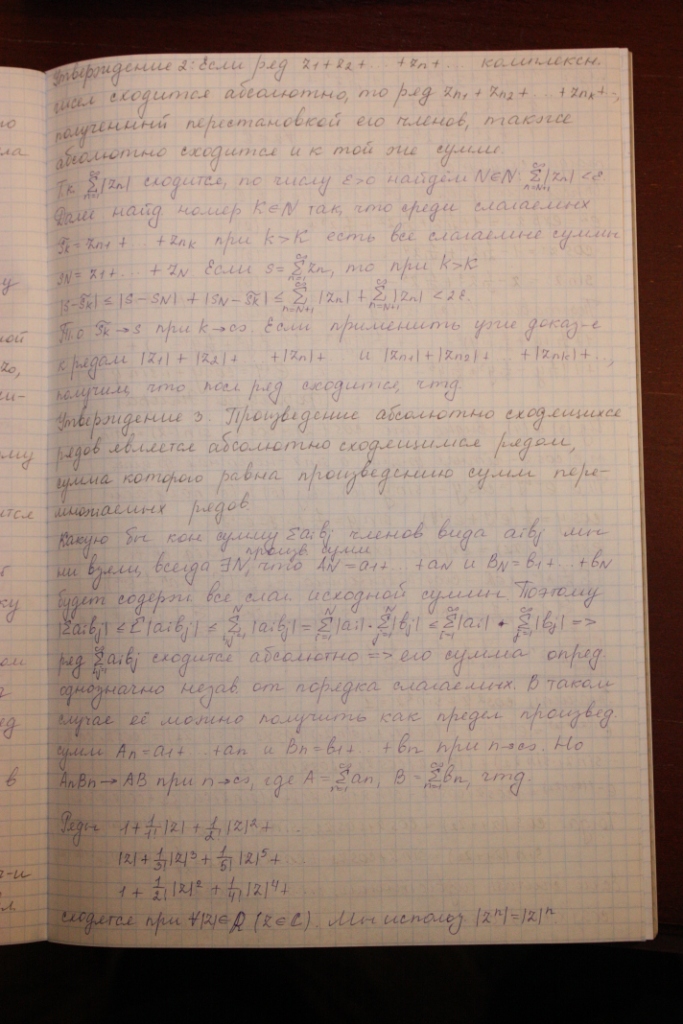 Утверждение 2: Если ряд z₁+z₂+...+zₙ+... комплексн.
чисел сходится абсолютно, то ряд zₙ₁+zₙ₂+...+zₙₖ+...,
полученный перестановкой его членов, также
абсолютно сходится и к той же сумме.
Т.к. ∑_{n=1}^∞|zₙ| сходится, по числу ε>0 найдём N∈N: ∑_{n=N+1}^∞|zₙ|<ε.
Далее найд номер K∈N так, что среди слагаемых
s̃ₖ=zₙ₁+...+zₙₖ при k>K есть все слагаемые суммы
s_N=z₁+...+z_N Если s=∑_{n=1}^∞zₙ, то при k>K
|s-s̃ₖ|≤|s-s_N|+|s_N-s̃ₖ|≤∑_{n=N+1}^∞|zₙ|+∑_{n=N+1}^∞|zₙ|<2ε.
Т.о s̃ₖ→s при k→∞. Если применить уже доказ-е
к рядам |z₁|+|z₂|+...+|zₙ|+... и |zₙ₁|+|zₙ₂|+...+|zₙₖ|+...,
получим, что посл ряд сходится, чтд.
Утверждение 3. Произведение абсолютно сходящихся
рядов является абсолютно сходящимся рядом,
сумма которого равна произведению сумм пере-
множаемых рядов.
Какую бы кон сумму ∑aᵢbⱼ членов вида aᵢbⱼ мы
произв сумм
ни взяли, всегда ∃N, что A_N=a₁+...+a_N и B_N=b₁+...+b_N
будет содерж. все слаг. исходной суммы Поэтому
|∑aᵢbⱼ|≤∑|aᵢbⱼ|≤∑_{i,j=1}^N|aᵢbⱼ|=∑_{i=1}^N|aᵢ|·∑_{j=1}^N|bⱼ|≤∑_{i=1}^∞|aᵢ|·∑_{j=1}^∞|bⱼ| =>
ряд ∑_{i,j=1}^∞aᵢbⱼ сходится абсолютно => его сумма опред.
однозначно незав. от порядка слагаемых. В таком
случае её можно получить как предел произвед
сумм Aₙ=a₁+...+aₙ и Bₙ=b₁+...+bₙ при n→∞. Но
AₙBₙ→AB при n→∞, где A=∑_{n=1}^∞aₙ, B=∑_{n=1}^∞bₙ, чтд.
Ряды 1+1/1!|z|+1/2!|z|²+...
|z|+1/3!|z|³+1/5!|z|⁵+...
1+1/2!|z|²+1/4!|z|⁴+...
сходятся при ∀|z|∈R (z∈C). Мы использ |zⁿ|=|z|ⁿ